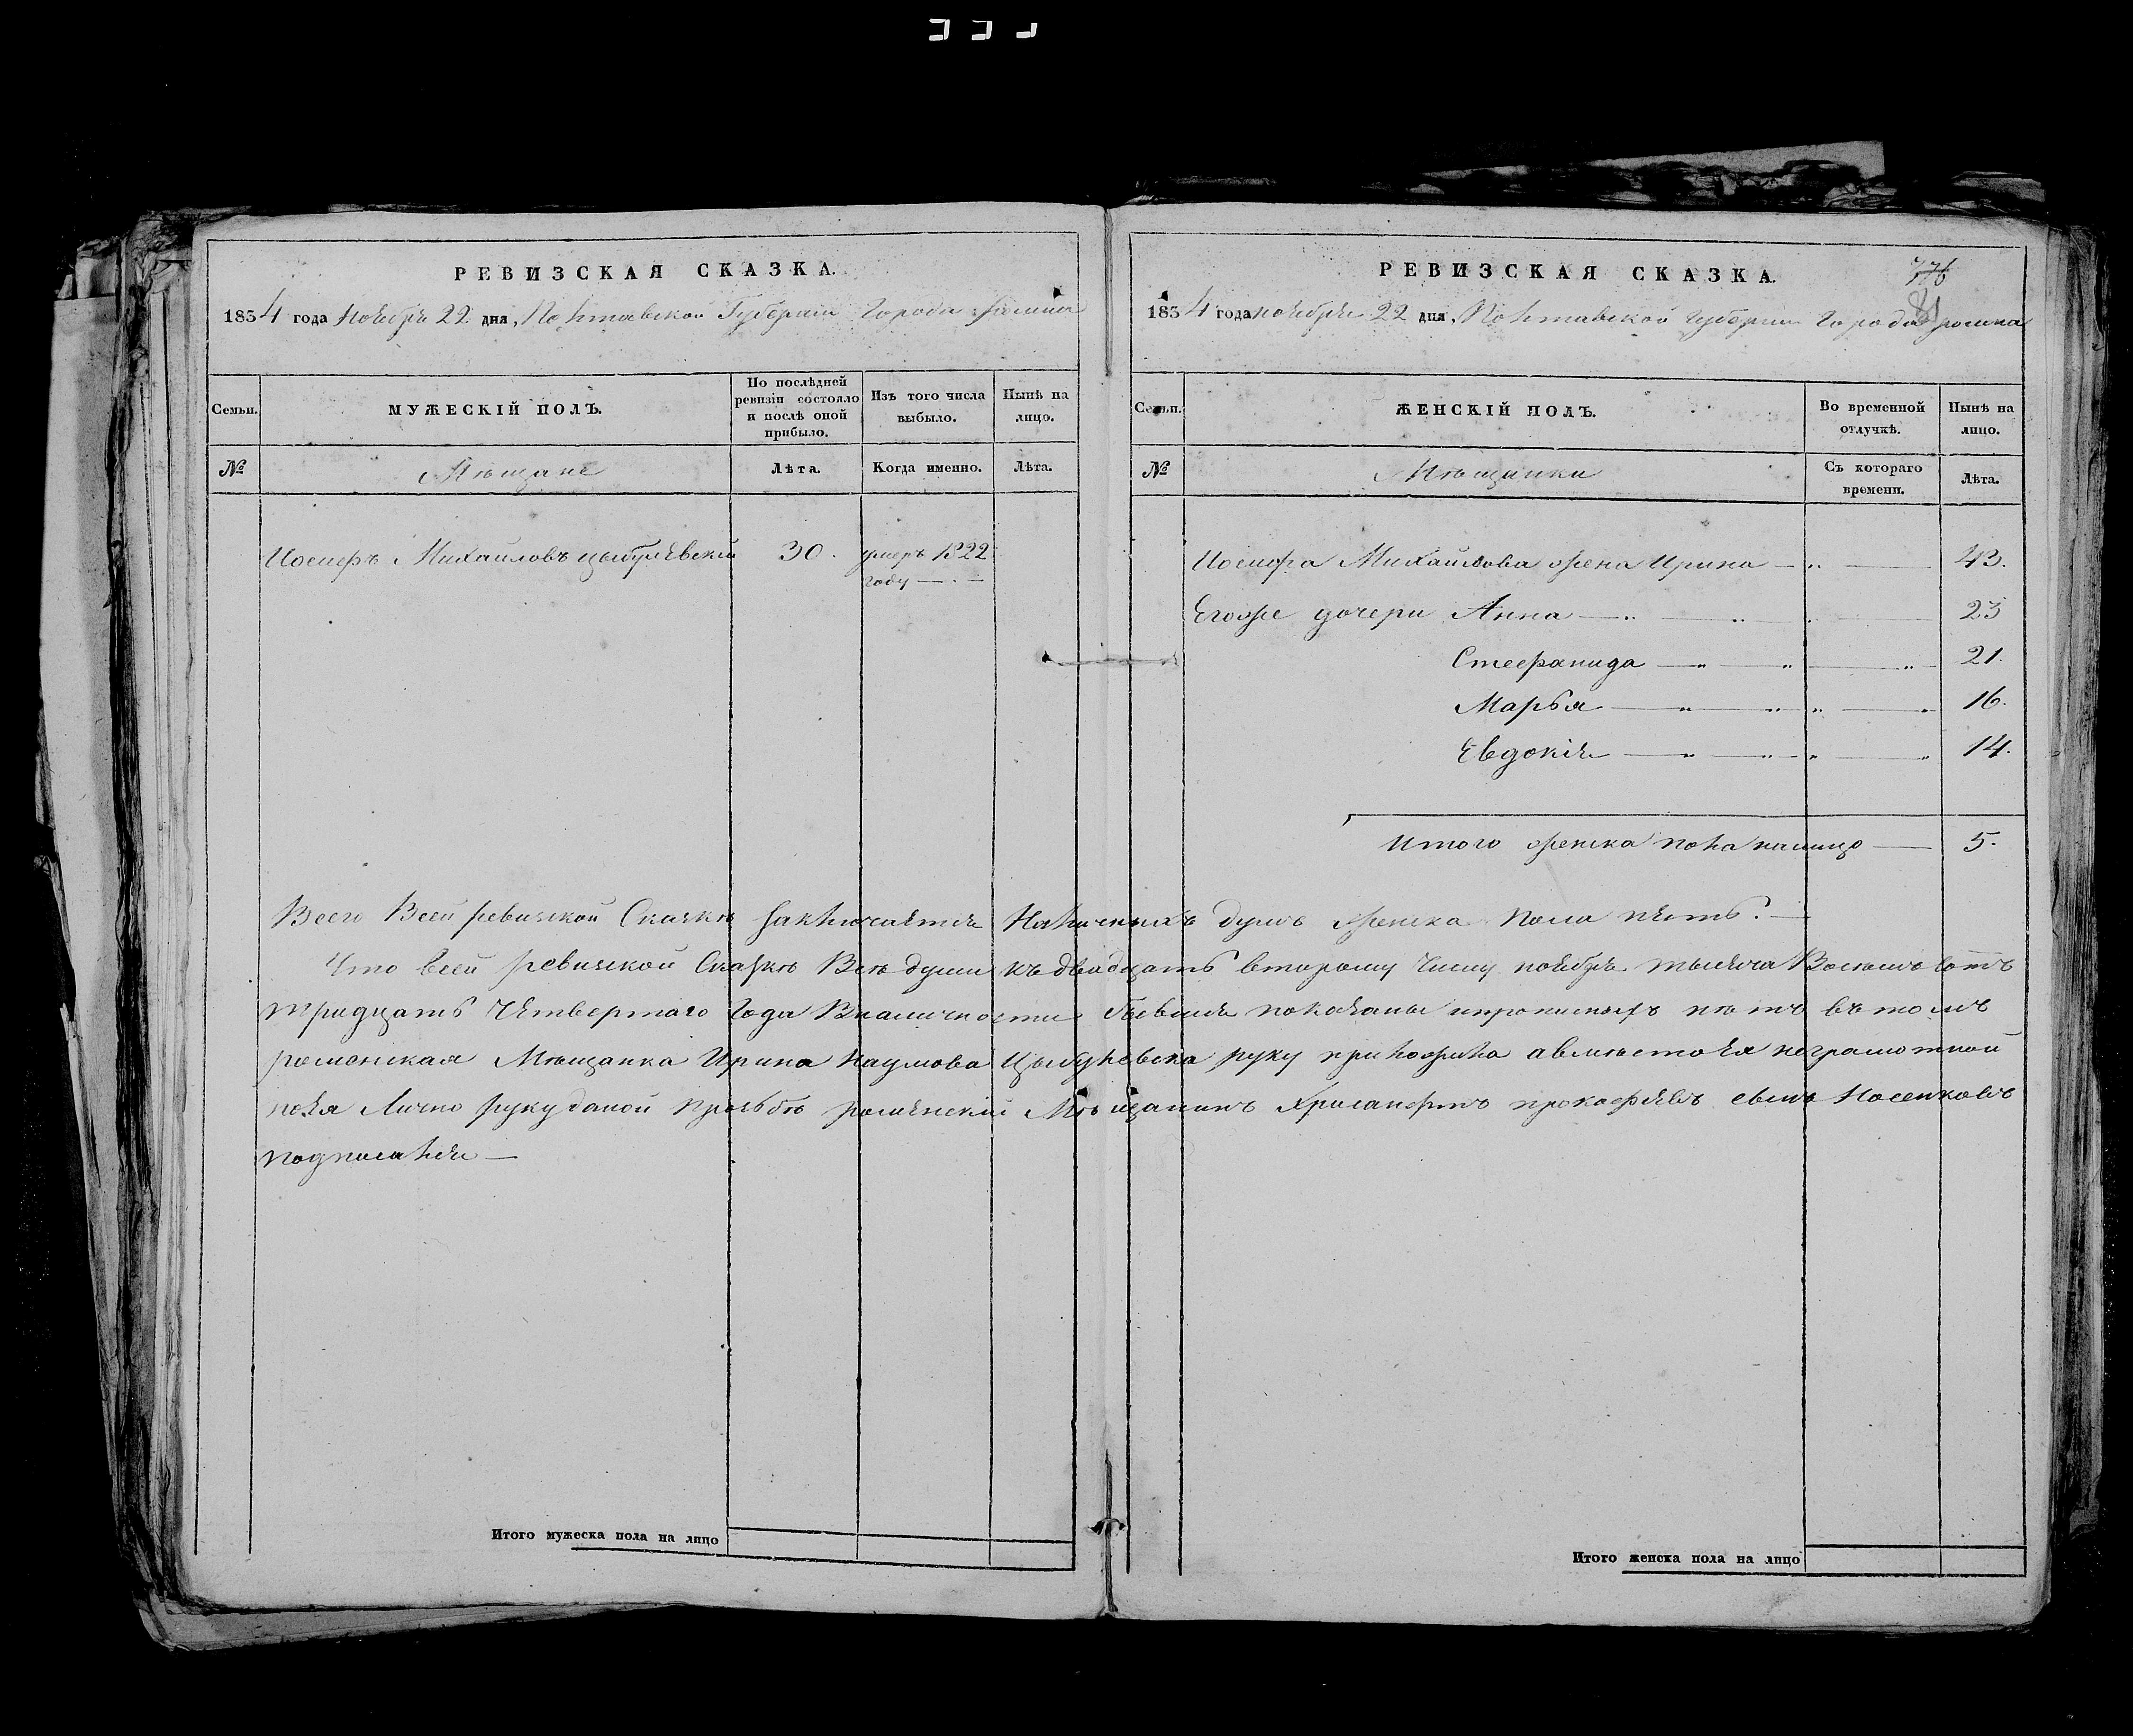 РЕВИЗСКАЯ СКАЗКА.
1834 года ноября 22 дня, Полтавской Губернии Города Ромна
Семьи.
МУЖЕСКІЙ ПОЛЪ.
По послѣдней ревизіи состояло и послѣ оной прибыло.
Изъ того числа выбыло.
Нынѣ на лицо.
№
Мѣщане
Лѣта.
Когда именно.
Лѣта.
Иосифъ Михайловъ цыбулевскій 30. умеръ 1822
году
РЕВИЗСКАЯ СКАЗКА.
776
81
1834 года ноября 22 дня, Полтавской губернии Города ромна
Семьи.
ЖЕНСКІЙ ПОЛЪ.
Во временной отлучкѣ.
Нынѣ на лицо.
№
Мѣщанки
Съ котораго времени.
Лѣта.
Иосифа Михайлова жена Ирина 43.
Егоже дочери Анна 23
Стефанида 21.
Марья 16.
Евдокія 14.
Итого женска пола налицо 5.
Всего Всей ревизской Сказкѣ заключается Наличныхъ душъ женска пола пять.
Что всей ревизской Сказкѣ Всѣ души къ двадцать второму числу ноября тысяча Восемъ сотъ
тридцать четвертаго года Вналичности бывшія показаны ипрописныхъ нѣтъ въ томъ
роменская Мѣщанка Ирина Наумова Цыбулевска руку приложила авмѣсто ея неграмотной
поея Лично рукуданой прозьбѣ роменскій Мѣщанинъ Хрисанфъ прокофіевъ сынъ Носенковъ
подписался
Итого мужеска пола на лицо
Итого женска пола на лицо